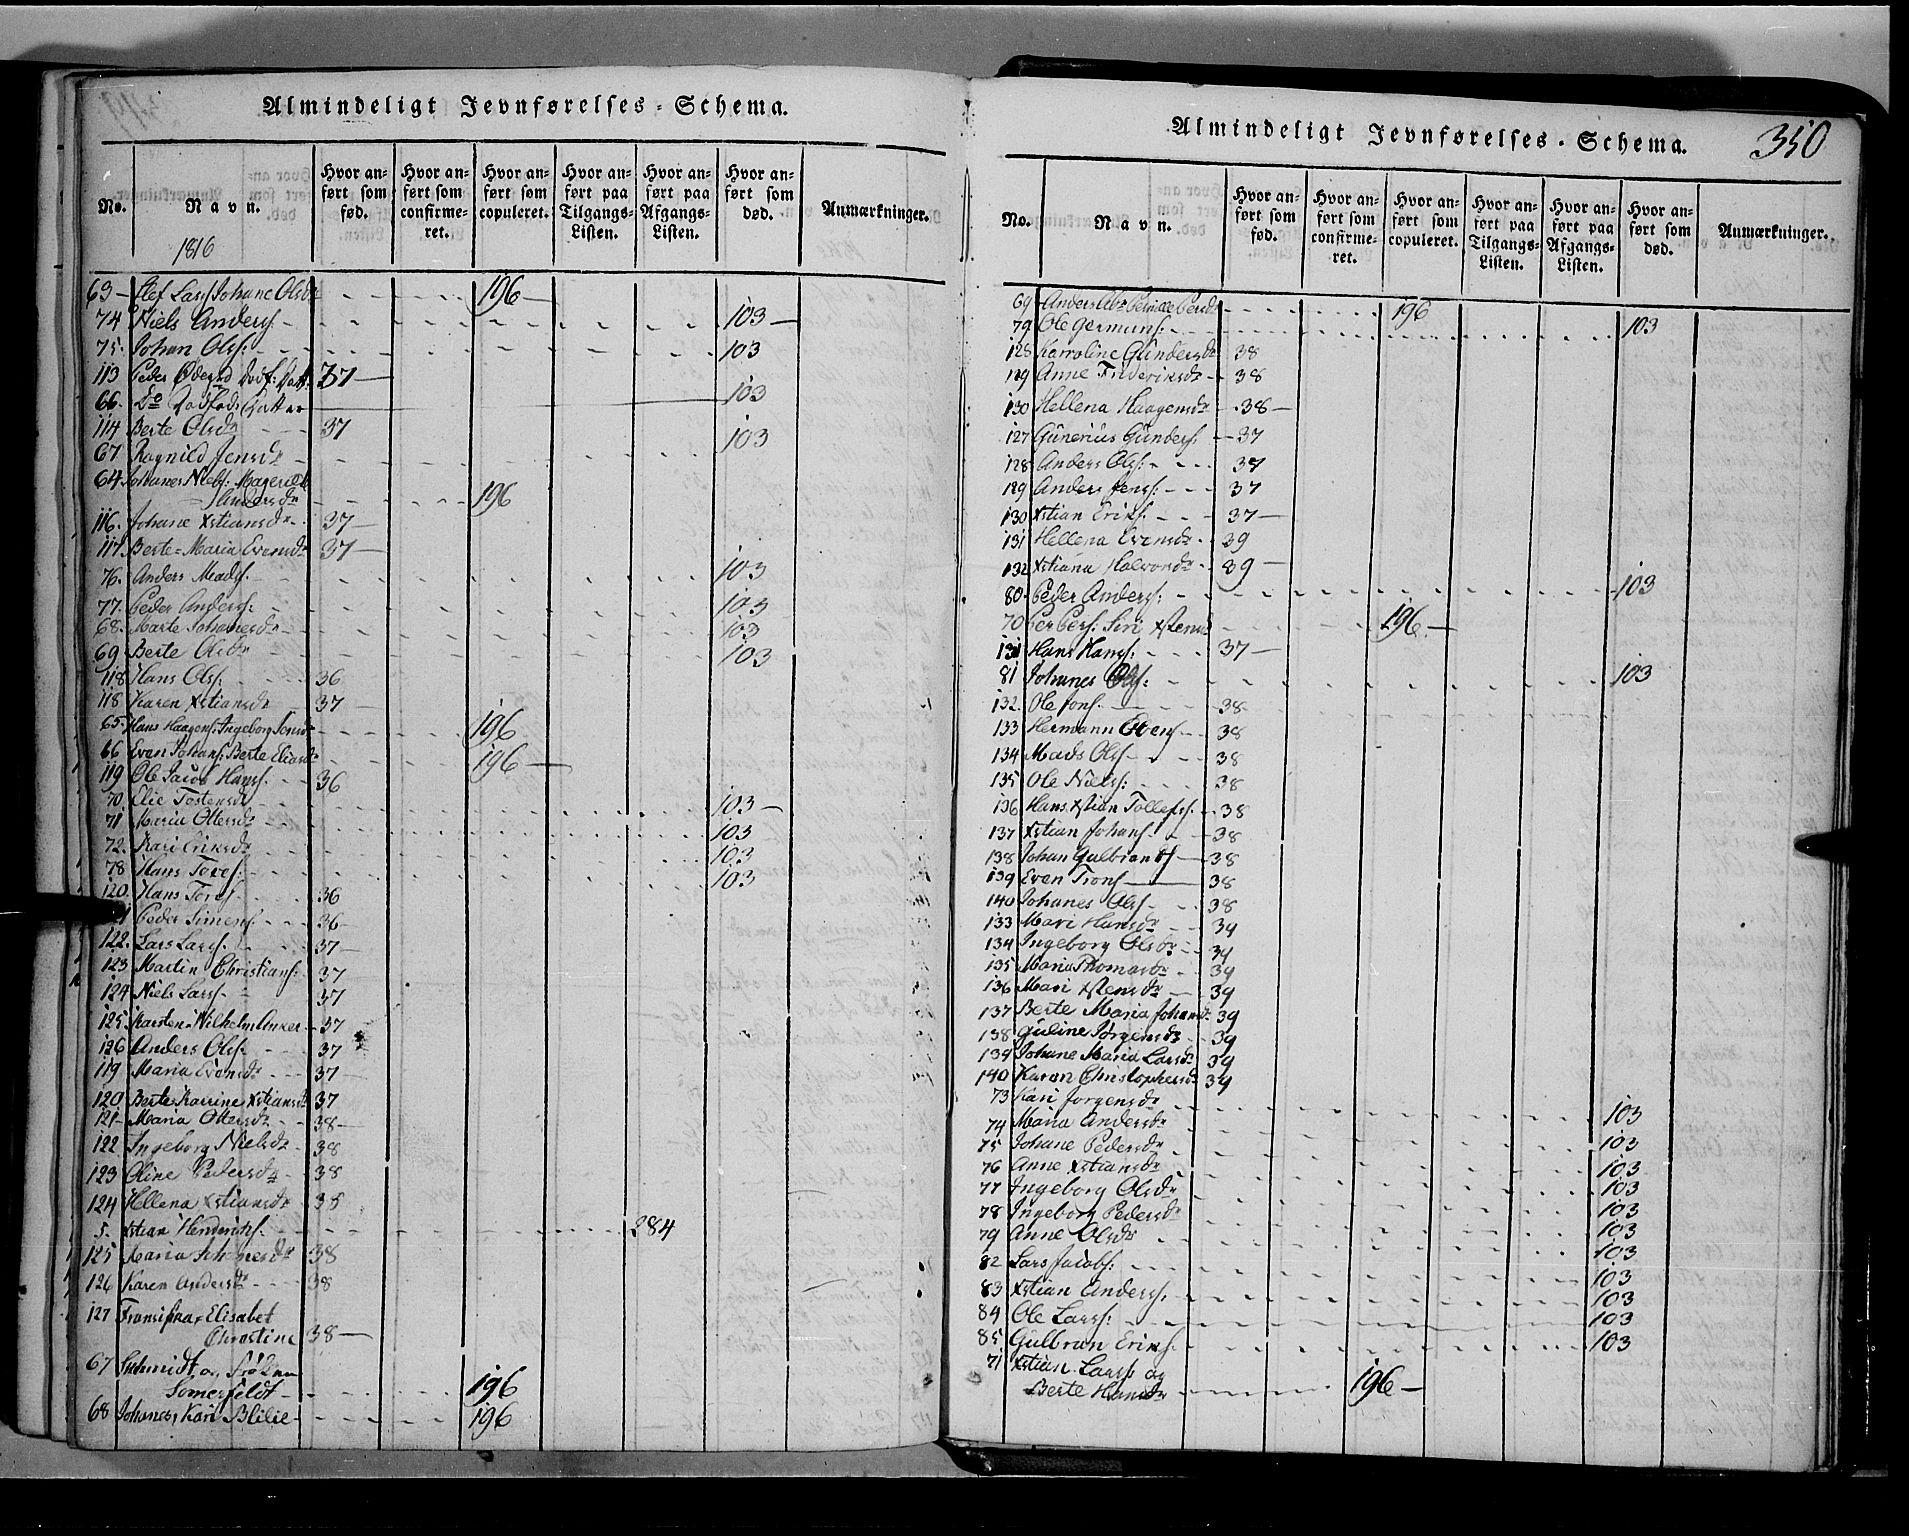 Almindeligt Jevnførelses-Schema.
No. Navn. Hvor anført som fød. Hvor anført som confirmeret. Hvor anført som copuleret. Hvor anført paa Tilgangs-Listen. Hvor anført paa Afgangs-Listen. Hvor anført som død. Anmærkninger.
1816
63 Lars Johane Olsdr 196
74 Niels Anders. 103
75. Johan Ols: 103
113 Peder Datt: 37
66. Do 103
114 Berte Olsdr 37
67 Ragnild Jensdr 103
64 Johanes Niels:
Andersdr 196
116. Johane Xstiansdr 37
117. Berte Maria Evensdr 37
76. Anders Mads. 103
77. Peder Anders: 103
68. Marte Johanesdr 103
69 Berte Olsdr 103
118 Hans Ols: 36
118 Karen Xstiansdr 37
65. Hans Haagens: Ingeborg Jensdr 196
66 Even Johans: Berte Eliasdr 196
119 Ole Jacob Hans. 36
70 Elie Tostensdr 103
71 Maria Ottersdr 103
72. Kari Eriksdr 103
78 Hans Tores: 103
120. Hans Tores. 36
Peder Simens. 36
122. Lars Lars. 37
123 Martin Christians: 37
124 Niels Lars. 37
125 Karsten Wilhelm Anker 37
126 Anders Ols: 37
119 Maria Evensdr 37
120 Berte Karrine Xstiansdr 37
121 Maria Ottersdr 38
122 Ingeborg Nielsdr 38
123 Oline Pedersdr 38
124 Hellena Xstiansdr 38
5. Xstian Henderichs. 284
125 Maria Johanesdr 38
126 Karen Andersdr 38
127 Fransiska Elisabet
Christine 38
67 Schmidt og Frøken
Somerfeldt 196
68 Johanes, Kari Blilie 196
Almindeligt Jevnførelses-Schema. 350
No. Navn. Hvor anført som fød. Hvor anført som confirmeret. Hvor anført som copuleret. Hvor anført paa Tilgangs-Listen. Hvor anført paa Afgangs-Listen. Hvor anført som død. Anmærkninger.
69 Anders Pernille Persdr 196
79 Ole Germuns. 103
128 Karroline Gundersdr 38
129 Anne Frideriksdr 38
130 Hellena Haagensdr 38
127 Gunerius Gunders. 37
128 Anders Ols: 37
129 Anders Jens: 37
130 Xstian Eriks. 37
131 Hellena Evensdr 39
132 Xstiana Halvorsdr 39
80. Peder Anders: 103
70 Per Pers: Siri Xstensdr 196
131 Hans Hans: 37
81 Johanes Ols: 103
132. Ole Jons. 38
133 Hermann Evens 38
134 Mads Ols 38
135 Ole Niels: 38
136 Hans Xstian Tollefs. 38
137 Xstian Johans. 38
138 Johan Gulbrands 38
139 Even Trons 38
140 Johanes Ols. 38
133 Mari Hansdr 39
134 Ingeborg Olsdr 39
135 Maria Thomasdr 39
136 Mari Xstensdr 39
137 Berte Maria Johansdr 39
138 Guline Jørgensdr 39
139 Johane Maria Larsdr 39
140 Karen Christophersdr 39
73 Kari Jørgensdr 103
74 Maria Andersdr 103
75 Johane Pedersdr 103
76 Anne Xstiansdr 103
77 Ingeborg Olsdr 103
78 Ingeborg Pedersdr 103
79 Anne Olsdr 103
82 Lars Jacobs: 103
83 Xstian Anders. 103
84 Ole Lars: 103
85 Gulbran Eriks. 103
71 Xstian Lars og
Berte Hansdr 196